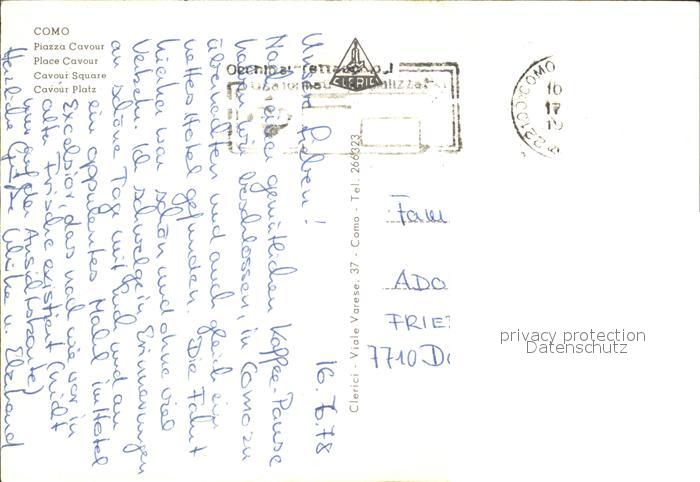 COMO
Piazza Cavour
Place Cavour
Cavour Square
Cavour Platz
CLERICI
22100 COMO
16
17
Clerici - Viale Varese, 37 - Como - Tel. 266323
16.7.78
Unsere Lieben!
Nach einer gemütlichen Kaffee-Pause
haben wir beschlossen, in Como zu
übernachten und auch gleich ein
nettes Hotel gefunden. Die Fahrt
hierher war schön und ohne viel
Verkehr. Ich schwelge in Erinnerungen
an schöne Tage mit Euch und an
ein opulentes Mahl im Hotel
Excelsior, das nach wie vor in
alter Frische existiert (nicht
nur auf der Ansichtskarte)
Herzliche Grüße Ulrike u. Ekehard
Fam
ADO
FRIE
7710 D
privacy protection
Datenschutz